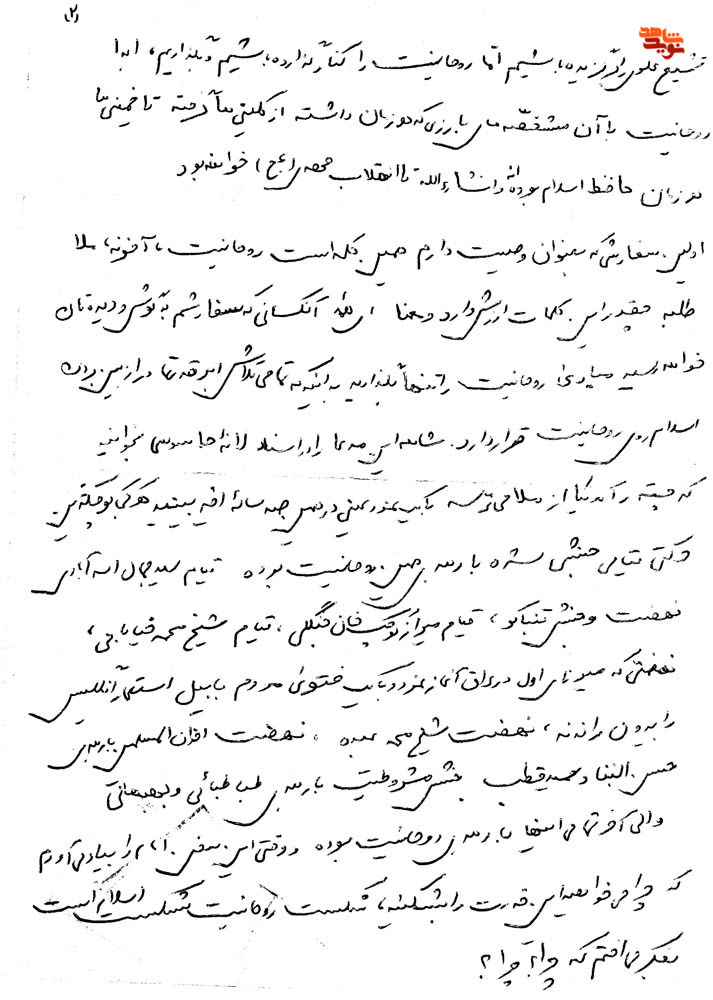 (۲)
شاهد
نوید
تشیع علوی را برگزیده باشیم اما روحانیت را کنار گذارده باشیم و بگذاریم، ابدا
روحانیت با آن مشخصه های بارزی که در زمان داشته از کلینی ها گرفته تا خمینی ها
در زمان حافظ اسلام بوده و انشاءالله تا انقلاب مهدی (عج) خواهد بود
اولین سفارشی که بعنوان وصیت دارم همین کلمه است روحانیت، آخوند، ملا
طلبه چقدر این کلمات ارزش دارد و معنا ای آنکسانی که سفارشم به گوش و دیده تان
خواهد رسید مبادی روحانیت را تنها بگذارید به اینکه تمامی تلاش ابرقدرتها در از بین بردن
اسلام روی روحانیت قرار دارد. شاهد این مدعا را در اسناد لانه جاسوسی بخوانید
که چه در آمریکا از می ترسد یا بهتر یعنی در همین صد ساله اخیر ببینید هر کجا کوچکترین
حرکتی قیامی جنبشی شده با رهبری همین روحانیت بوده قیام سید جمال اسدآبادی
نهضت و جنبش تنباکو، قیام میرزا کوچک خان جنگلی، قیام شیخ محمد خیابانی،
نهضتی که میرزای اول در عراق آغاز نمود و با یک فتوی مردم با بیل استعمار انگلیس
را بیرون راندند، نهضت شیخ محمد عبده، نهضت اخوان المسلمین با رهبری
حسن البنا و سید قطب جنبش مشروطیت با رهبری طباطبائی و بهبهانی
و الی آخر تمامی اینها با رهبری روحانیت بوده و وقتی این سخن امام را بیاد می آورم
که چرا می خواهید این قدرت را بشکنید، شکست روحانیت شکست اسلام است
بفکر می افتم که چرا؟ چرا؟